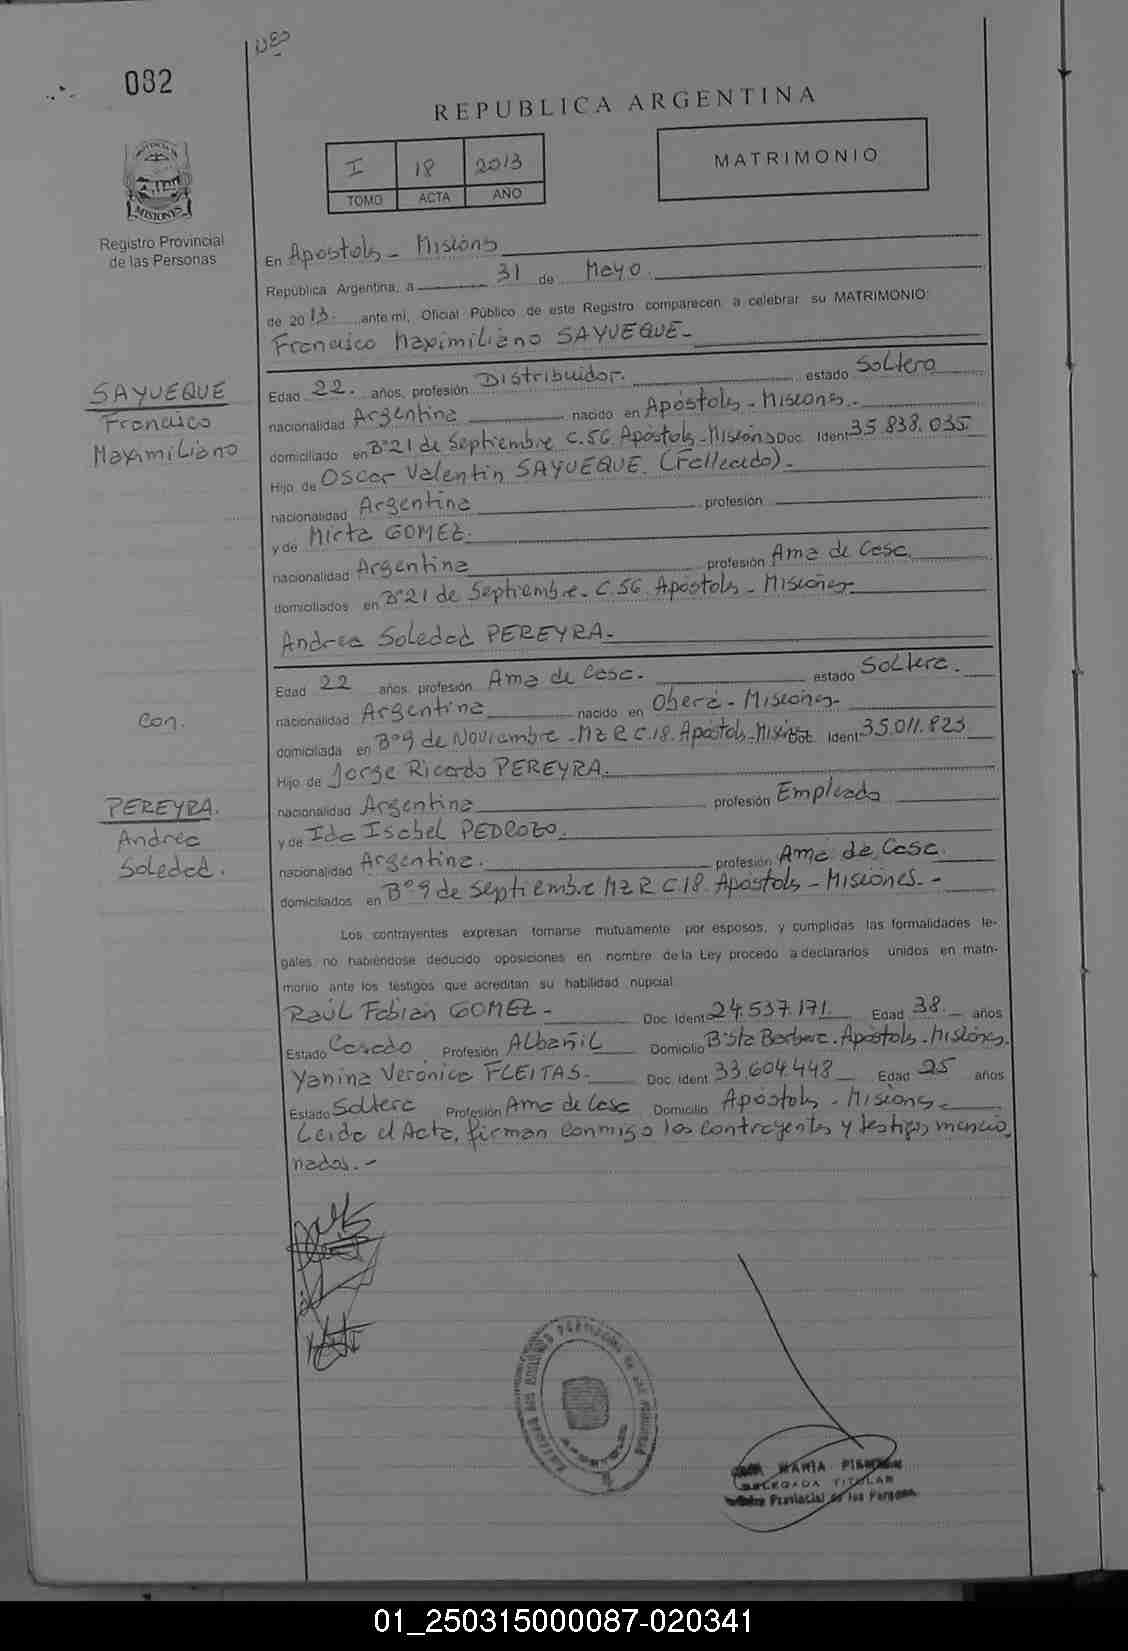 082
REPUBLICA ARGENTINA
I 18 2013
TOMO ACTA AÑO
MATRIMONIO
PROVINCIA DE
MISIONES
Registro Provincial
de las Personas
En Apóstols - Misions
República Argentina, a 31 de Mayo
de 2013. ante mí, Oficial Público de este Registro comparecen a celebrar su MATRIMONIO:
Francisco Maximiliano SAYUEQUE.-
SAYUEQUE
Francisco
Maximiliano
Edad 22. años, profesión Distribuidor. estado Soltero
nacionalidad Argentina nacido en Apóstols - Misions.
domiciliado en B°21 de Septiembre C.56. Apóstols - Misions Doc. Ident 35.838.035.
Hijo de Oscar Valentin SAYUEQUE. (Fallecido).-
nacionalidad Argentina profesión
y de Mirta GOMEZ.
nacionalidad Argentina profesión Ama de Casa.
domiciliados en B°21 de Septiembre. C.56. Apóstols - Misiones
Andrea Soledad PEREYRA.-
Edad 22 años, profesión Ama de Casa. estado Soltera.
Con.
nacionalidad Argentina nacido en Oberá - Misiones.
domiciliada en B°9 de Noviembre - Mz R C.18. Apóstols - Doc. Ident 35.011.823
Hijo de Jorge Ricardo PEREYRA.
PEREYRA.
Andrea
Soledad.
nacionalidad Argentina profesión Empleado
y de Ida Isabel PEDROZO.
nacionalidad Argentina. profesión Ama de Casa.
domiciliados en B°9 de Septiembre Mz R C18. Apóstols - Misiones. -
Los contrayentes expresan tomarse mutuamente por esposos, y cumplidas las formalidades le-
gales no habiéndose deducido oposiciones en nombre de la Ley procedo a declararlos unidos en matri-
monio ante los testigos que acreditan su habilidad nupcial
Raúl Fabián GOMEZ - Doc. Ident 24.537.171. Edad 38. años
Estado Casado Profesión Albañil Domicilio B°Sta Barbara. Apóstols - Misiones.
Yanina Verónica FLEITAS. Doc. Ident 33.604.448 Edad 25 años
Estado Soltera Profesión Ama de Casa Domicilio Apóstols - Misions.
Leida el Acta, firman conmigo los contrayentes y testigos mencio
nados.-
MARIA
DELEGADA TITULAR
Provincial de las Personas
01_250315000087-020341